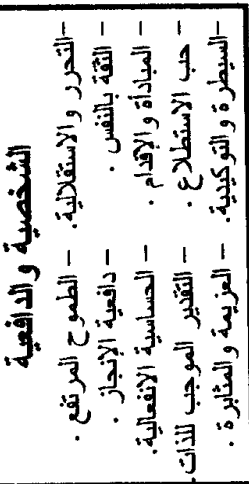 الشخصية والدافعية
– الطموح المرتفع . – التحرر والاستقلالية.
– دافعية الإنجاز . – الثقة بالنفس .
– الحساسية الانفعالية. – المبادأة والإقدام .
– التقدير الموجب للذات. – حب الاستطلاع .
– العزيمة والمثابرة . – السيطرة والتوكيدية.